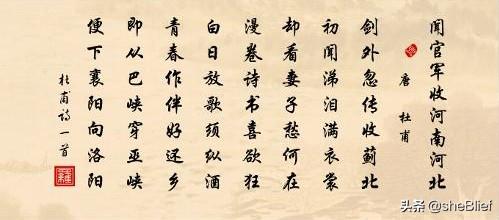 闻官军收河南河北
唐 杜甫
剑外忽传收蓟北
初闻涕泪满衣裳
却看妻子愁何在
漫卷诗书喜欲狂
白日放歌须纵酒
青春作伴好还乡
即从巴峡穿巫峡
便下襄阳向洛阳
杜甫诗一首
头条 @sheBlief